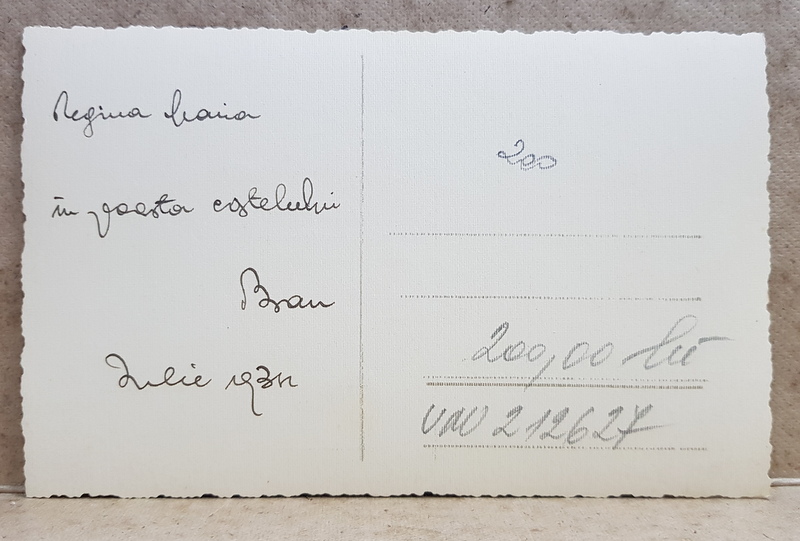 Regina Maria
în poarta castelului
Bran
Iulie
200
200,00 lei
212627